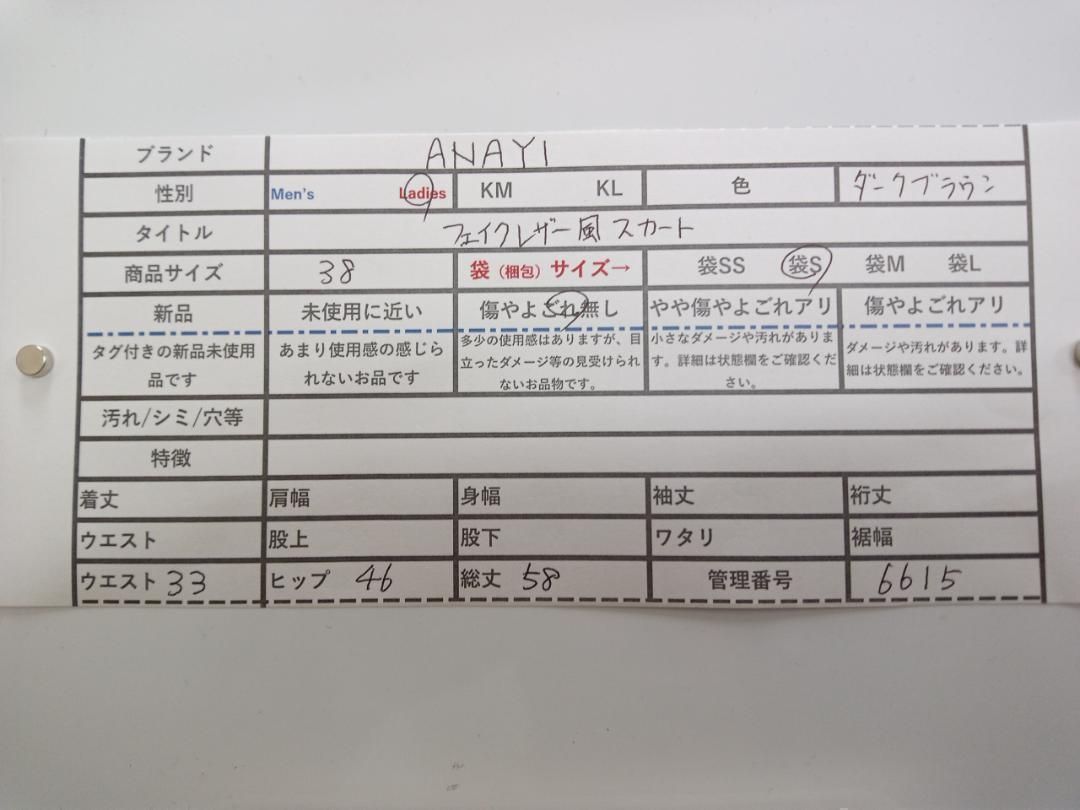 ブランド ANAYI
性別 Men's Ladies KM KL 色 ダークブラウン
タイトル フェイクレザー風 スカート
商品サイズ 38 袋（梱包）サイズ→ 袋SS 袋S 袋M 袋L
新品 未使用に近い 傷やよごれ無し やや傷やよごれアリ 傷やよごれアリ
タグ付きの新品未使用品です あまり使用感の感じられないお品です 多少の使用感はありますが、目立ったダメージ等の見受けられないお品物です。 小さなダメージや汚れがあります。詳細は状態欄をご確認ください。 ダメージや汚れがあります。詳細は状態欄をご確認ください。
汚れ/シミ/穴等
特徴
着丈 肩幅 身幅 袖丈 裄丈
ウエスト 股上 股下 ワタリ 裾幅
ウエスト 33 ヒップ 46 総丈 58 管理番号 6615